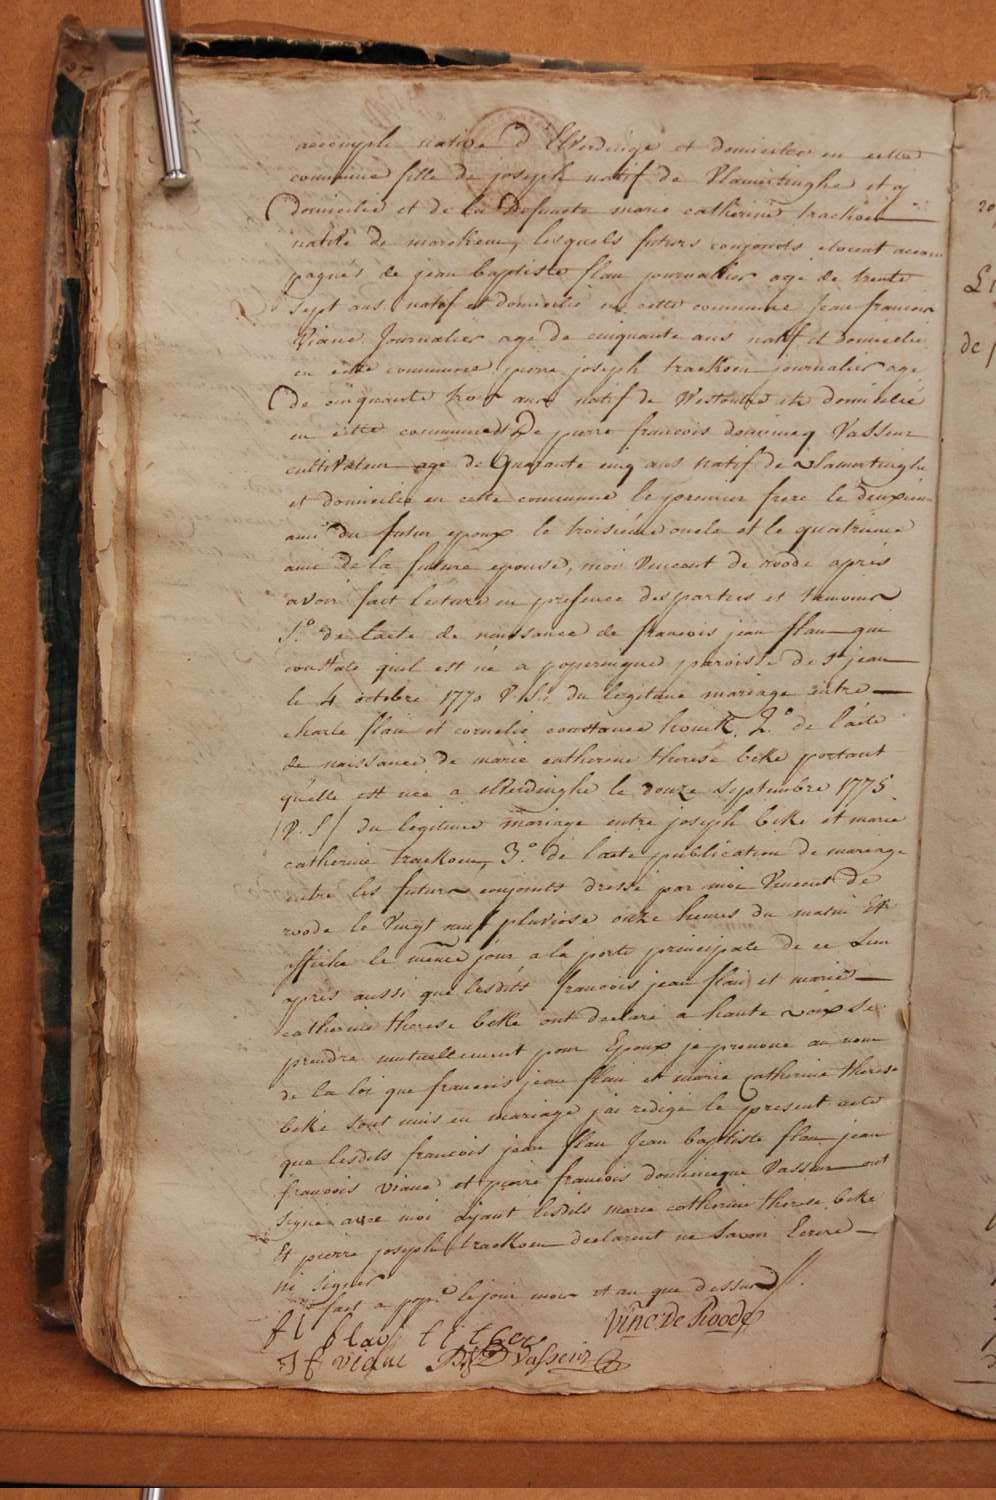 accomplis native d'Elverdinge et domiciliée en cette
commune fille de joseph natif de Vlamertinghe et y
domicilié et de la defuncte marie catherine traekoen
native de , lesquels futurs conjoints etoient accom
pagnés de jean baptiste flau journalier agé de trente
sept ans natif et domicilié en cette commune Jean francois
Viane Journalier agé de cinquante ans natif et domicilié
en cette commune pierre joseph traekoen journalier agé
de cinquante trois ans natif de Westoutre et domicilié
en cette commune et De pierre francois dominicq Vasseur
cultivateur agé de Quarante cinq ans natif de vlamertinghe
et domicilié en cette commune le premier frere le deuxieme
ami du futur epoux le troisiéme oncle et le quatrieme
ami de la future epouse, moi Vincent de roode après
avoir fait lecture en presence des parties et temoins
1.º de l'acte de naissance de francois jean flau qui
constate quil est né a poperingue paroisse de St jean
le 4 octobre 1770 V.St. du legitime mariage entre
charle flau et cornelie constance 2.º de l'acte
de naissance de marie catherine therese beke portant
quelle est née a elverdinghe le douze Septembre 1775
(V. S) du legitime mariage entre joseph beke et marie
catherine traekoen, 3.º de l'acte publication de mariage
entre les futurs conjoints dressé par moi Vincent de
roode le Vingt neuf pluviose onze heures du matin Et
affiché le même jour a la porte principale de ce Lieu
apres aussi que lesdits francois jean flau et marie
catherine therese beke ont declaré a haute voix se
prendre mutuellement pour Epoux je prononce au nom
de la loi que francois jean flau et marie Catherine therese
beke sont unis en mariage j'ai redigé le present acte
que lesdits francois jean flau Jean baptiste flau jean
francois viane et pierre francois dominicque Vasseur ont
signé avec moi aÿant lesdits marie catherine therese beke
Et pierre joseph traekoen declarent ne savoir Ecrire
ni signer
fait a pop.e le jour mois et an que dessus
f i flau Vinc. De Roode
J f viane Vasseur